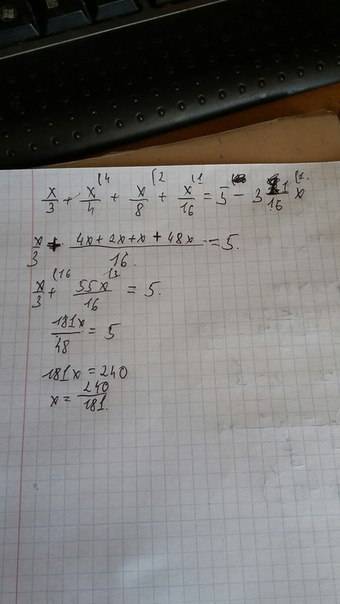 x/3 + x/4 (4 + x/8 (2 + x/16 (1 = 5 - 3 1/16 x
x/3 + (4x + 2x + x + 48x)/16 = 5.
x/3 (16 + 55x/16 (3 = 5.
181x/48 = 5
181x = 240
x = 240/181.